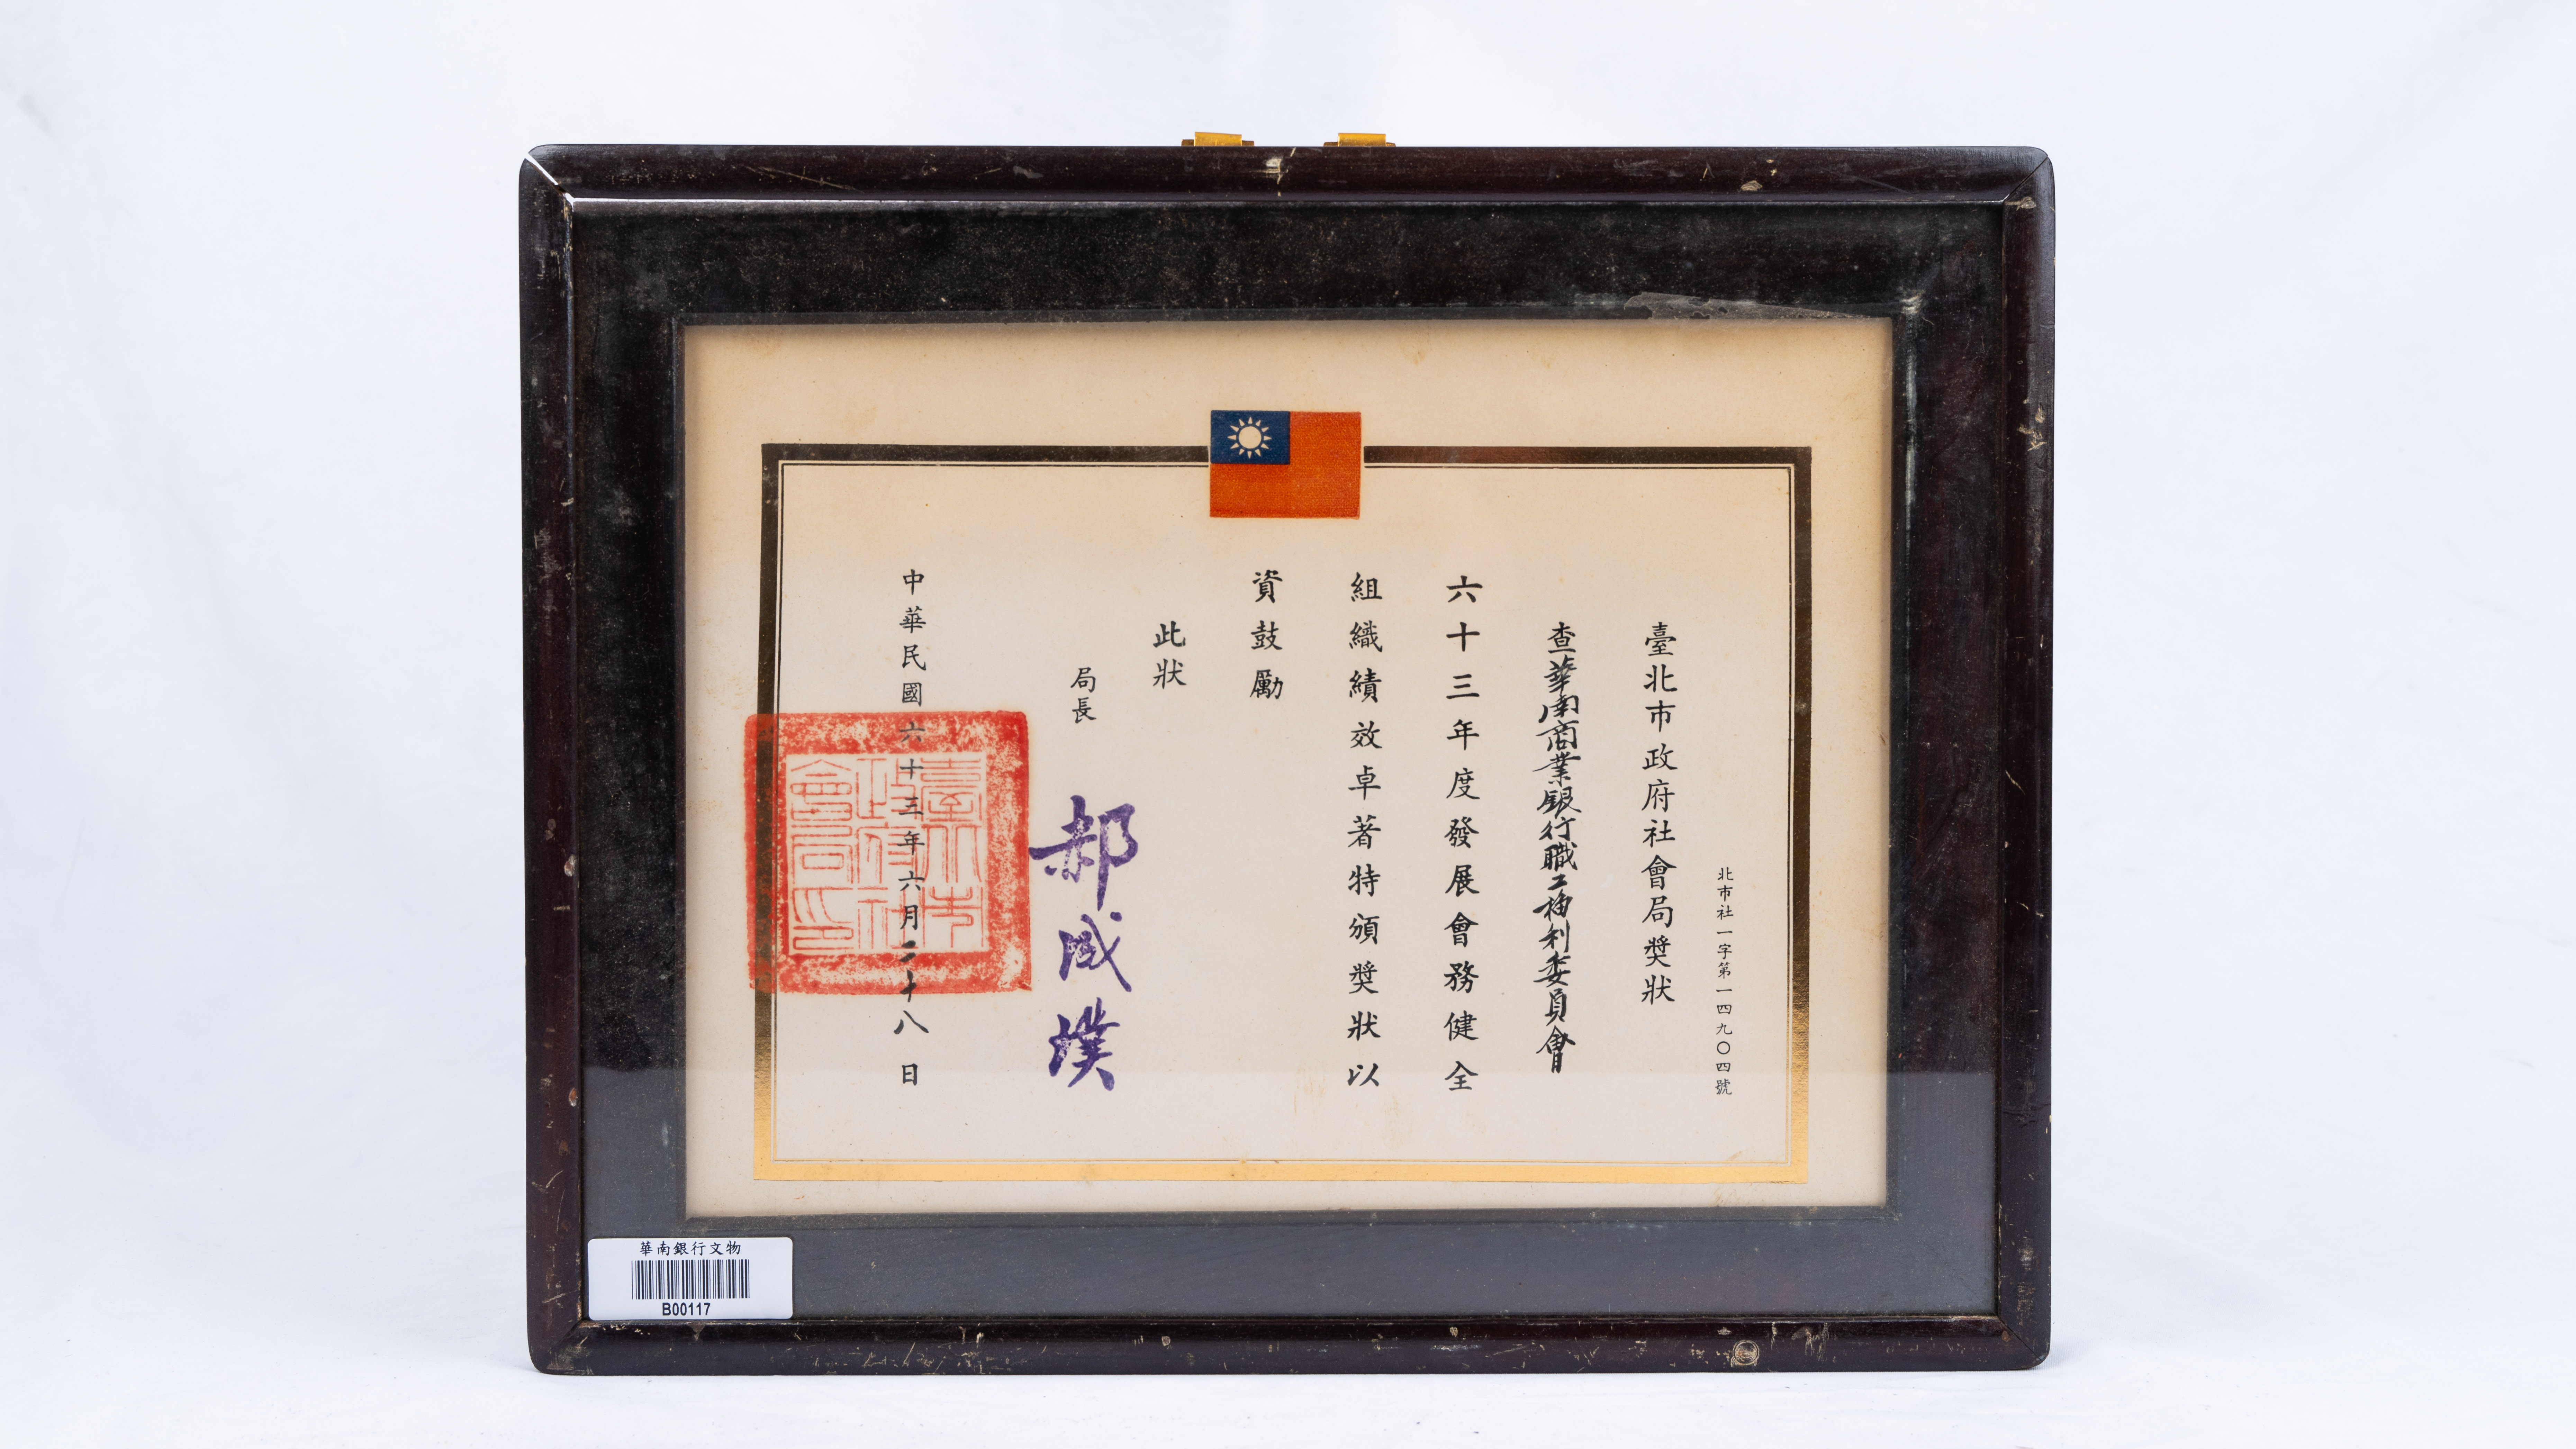 北市社一字第一四九〇四號
臺北市政府社會局獎狀
查華南商業銀行職工福利委員會
六十三年度發展會務健全
組織績效卓著特頒獎狀以
資鼓勵
此狀
局長 郝成璞
中華民國六十三年六月二十八日
臺北市
政府社
會局印
華南銀行文物
B00117